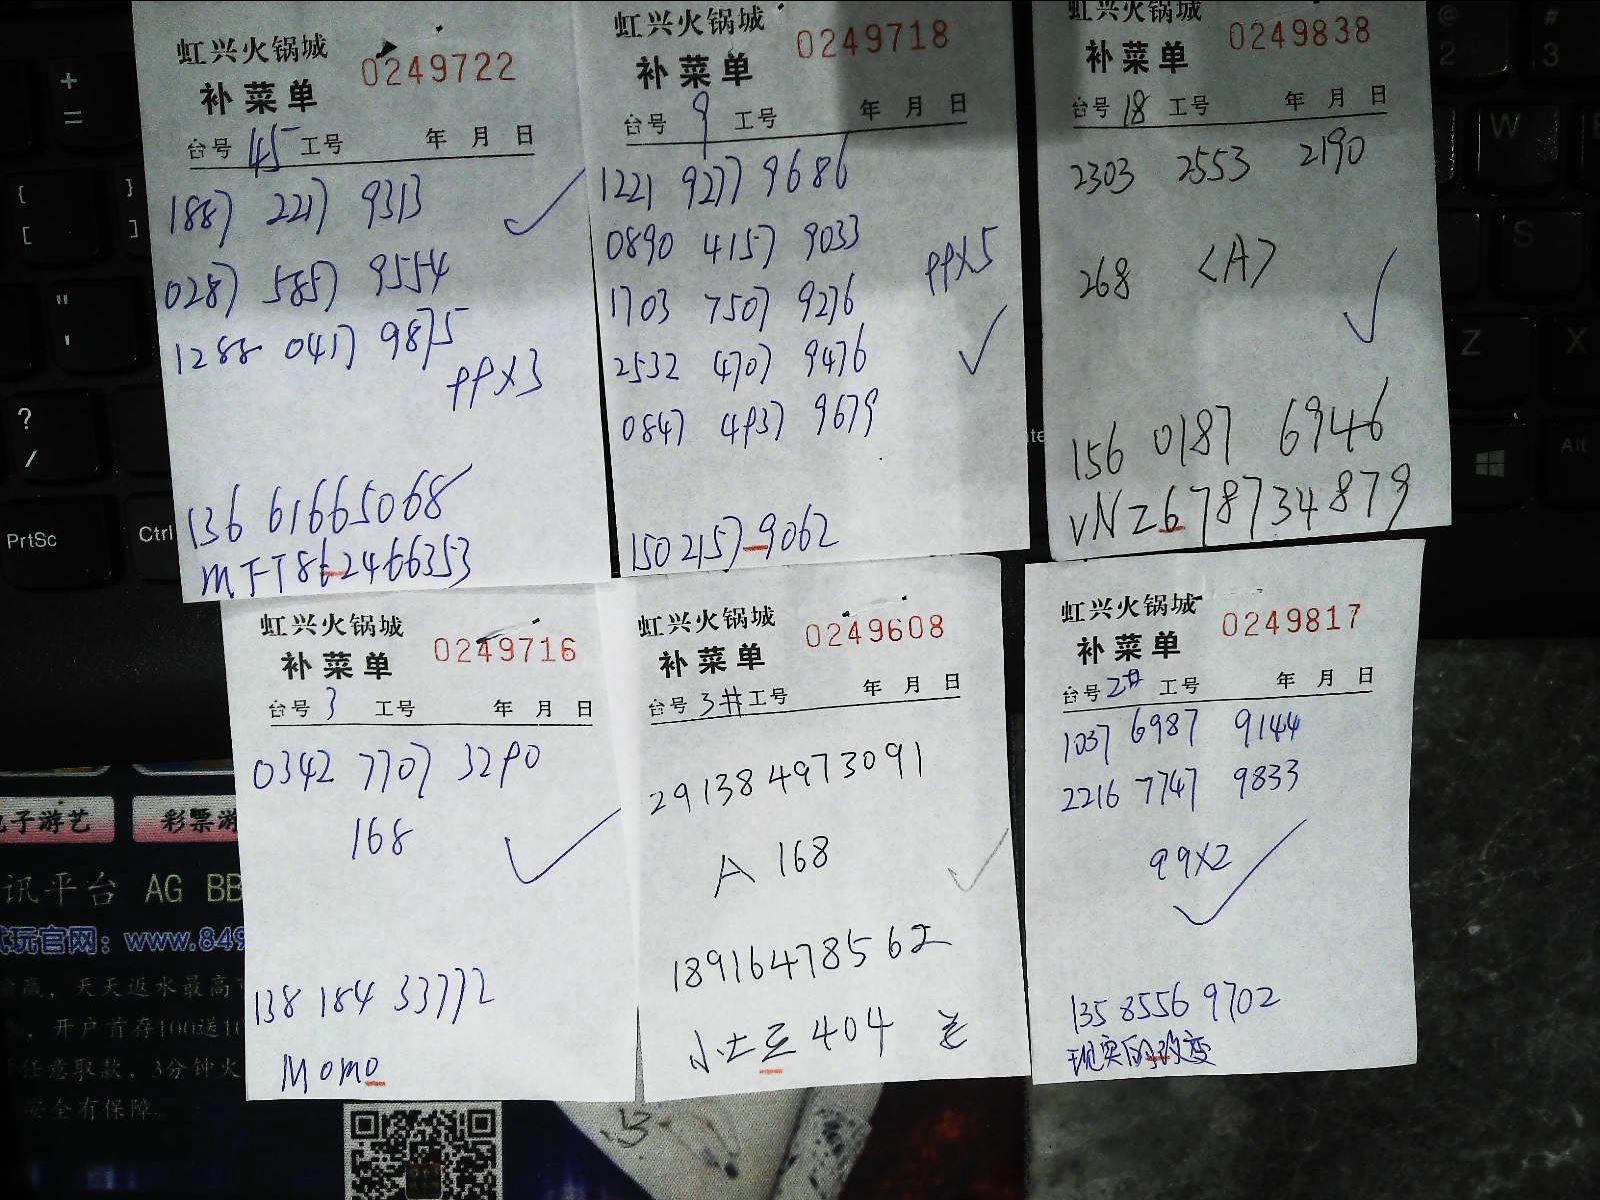 虹兴火锅城
补菜单 0249722
台号 45 工号 年 月 日
1887 2217 9313
0287 5857 9554
1288 0417 9875
PPX3
136 61665068
虹兴火锅城
补菜单 0249718
台号 9 工号 年 月 日
1221 9277 9686
0890 4157 9033
PPX5
1703 7507 9276
2532 4707 9476
0847 4937 9679
150 2157 9062
虹兴火锅城
补菜单 0249838
台号 18 工号 年 月 日
2303 2553 2190
268 <A>
156 0187 6946
VNZ678734879
虹兴火锅城
补菜单 0249716
台号 3 工号 年 月 日
0342 7707 3290
168
138 184 33772
Momo
虹兴火锅城
补菜单 0249608
台号 3# 工号 年 月 日
291384973091
A 168
18916478562
404
虹兴火锅城
补菜单 0249817
台号 2# 工号 年 月 日
1037 6987 9144
2216 7747 9833
99X2
135 8556 9702
现实的改变
子游艺
彩票游
讯平台 AG BB
玩官网：www.849
天天返水最高
开户首存100送10
任意取款，3分钟火
安全有保障。
PrtSc
Ctrl
Alt